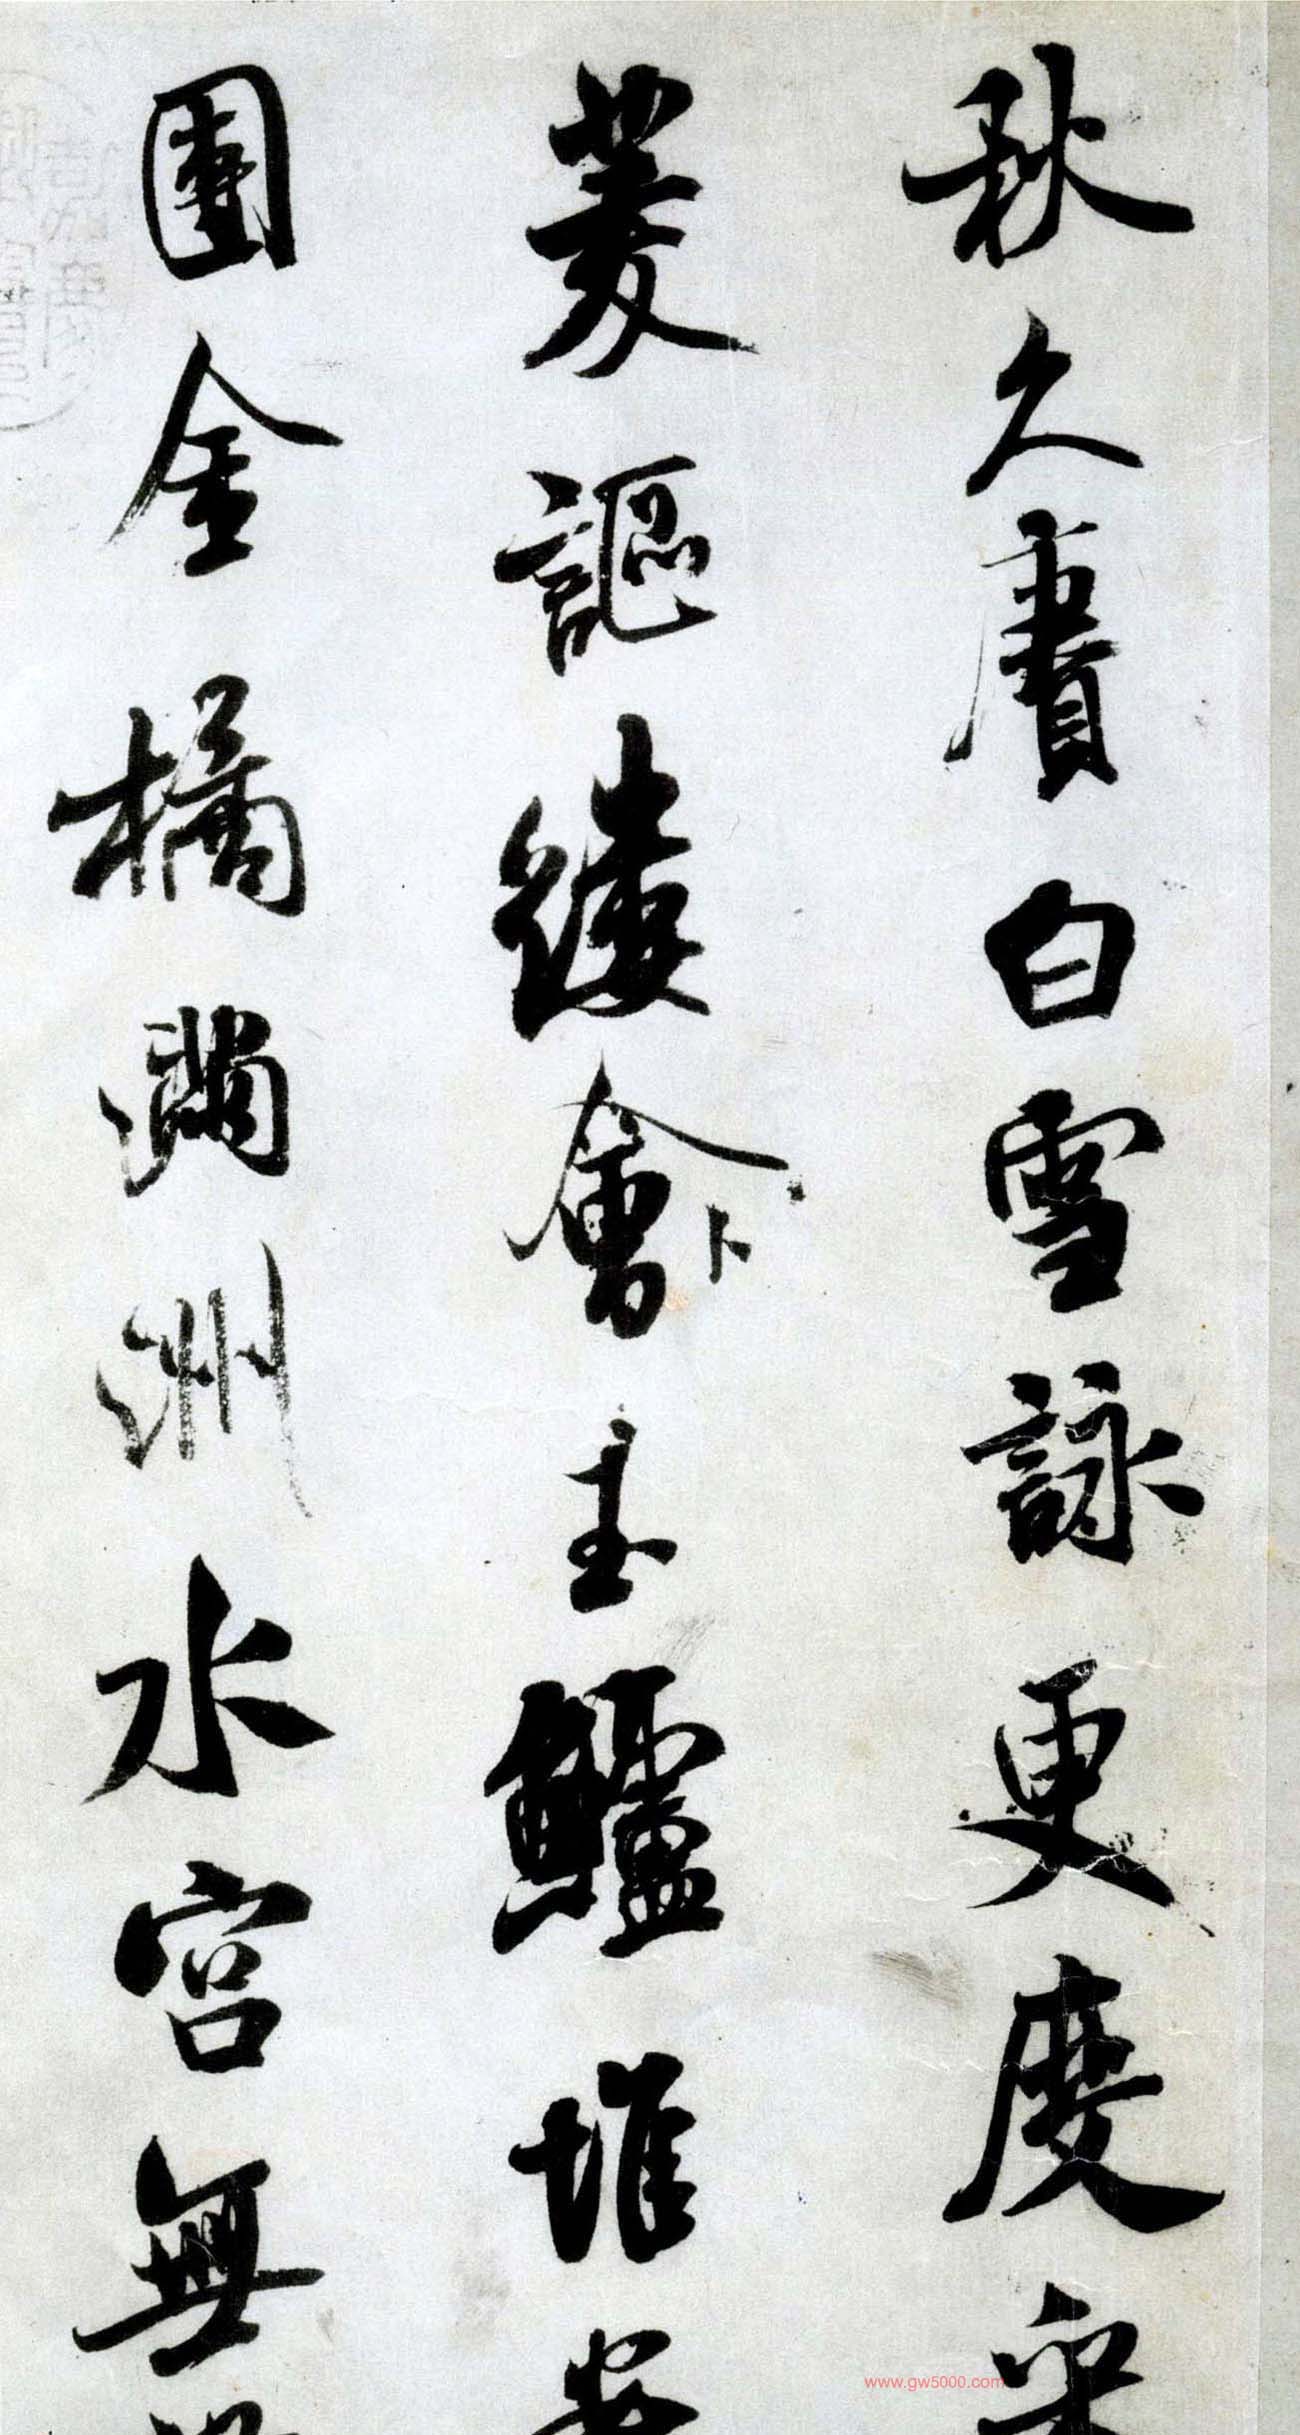 秋久賡白雪詠更度采
菱謳縷會卜玉鱸堆案
團金橘滿洲水宮無
www.gw5000.com